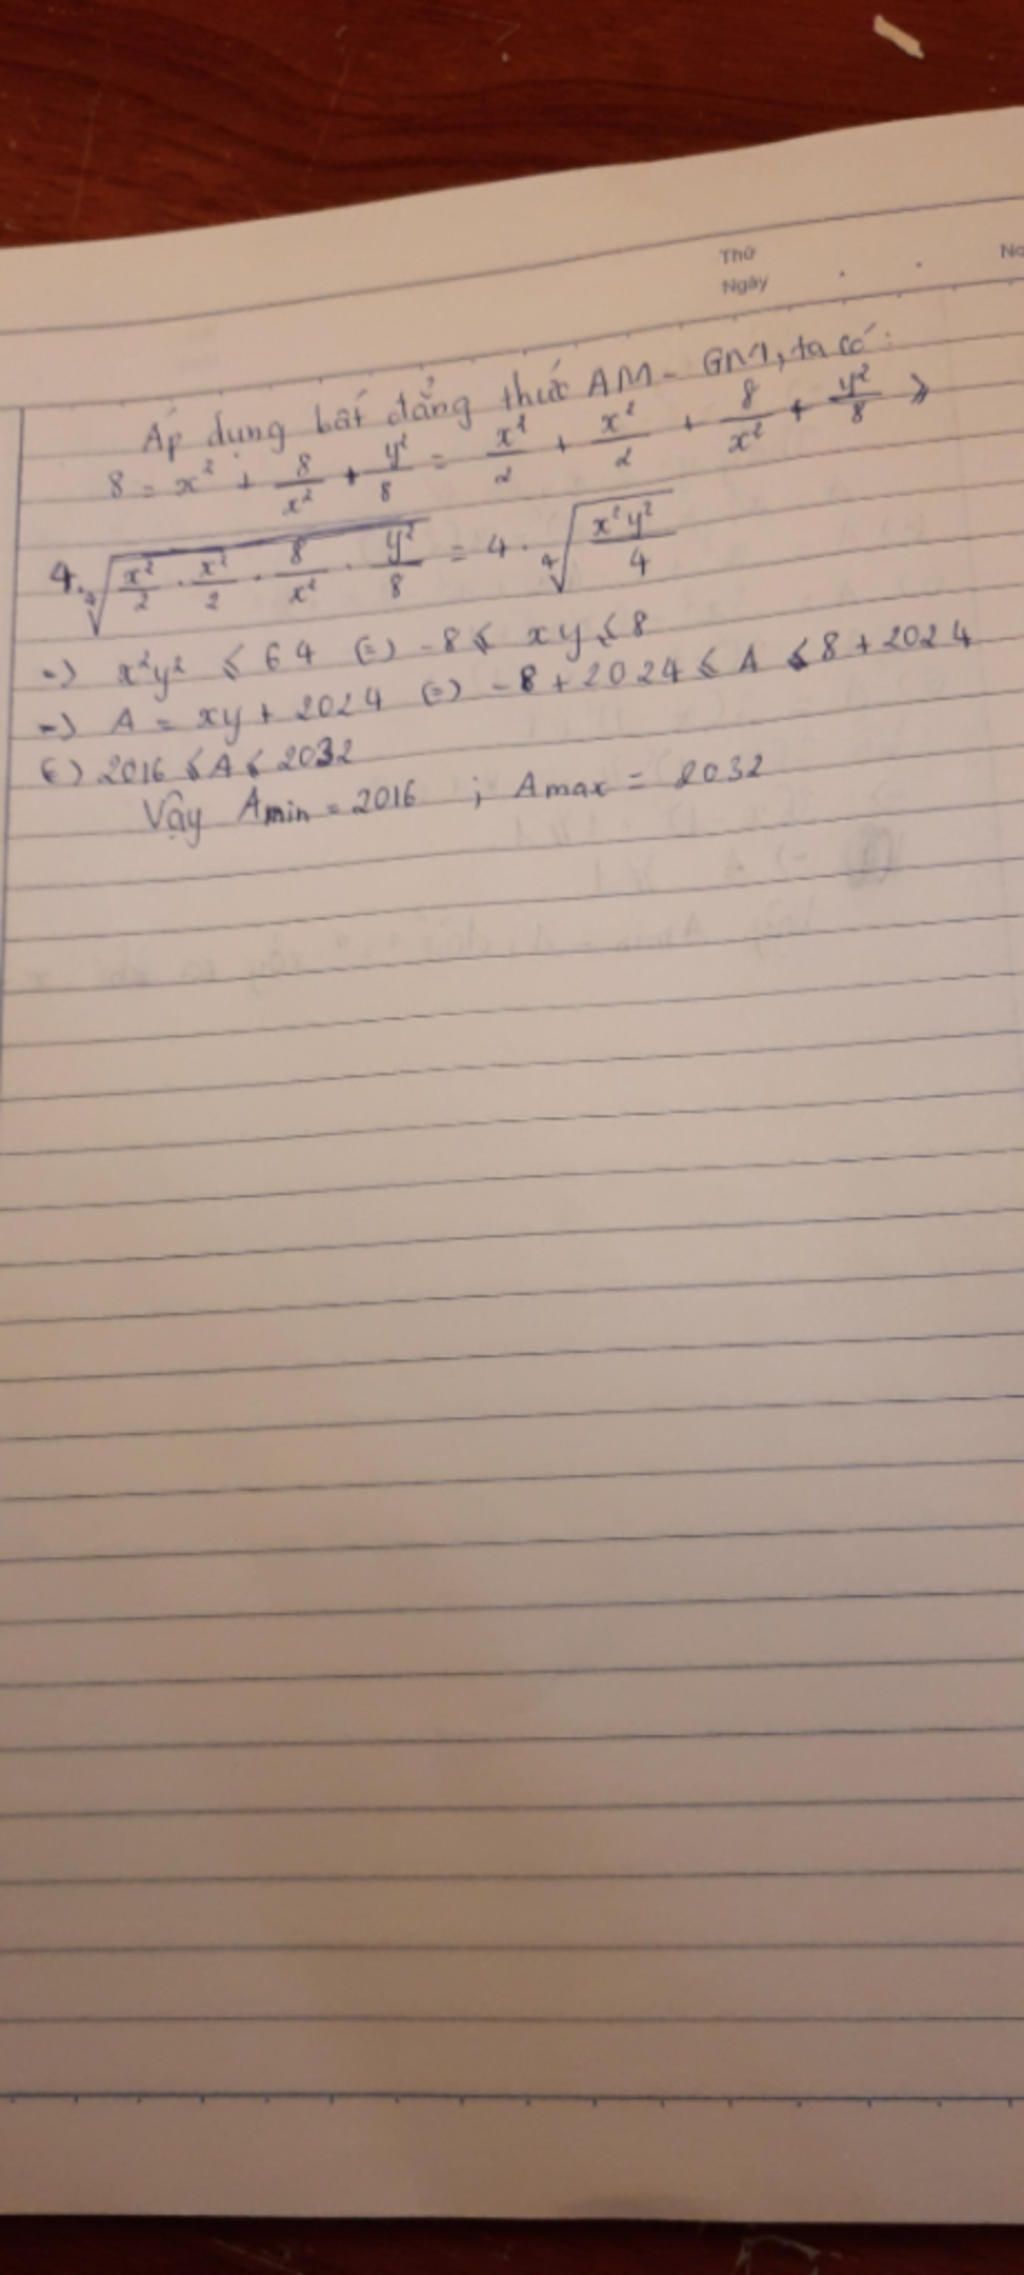 Thứ
Ngày
No
Áp dụng bất đẳng thức AM - GM, ta có:
8 = x² + 8/x² + y²/8 = x²/2 + x²/2 + 8/x² + y²/8 ≥
4.⁴√(x²/2 . x²/2 . 8/x² . y²/8) = 4.⁴√(x²y²/4)
=> x²y² ≤ 64 (=) -8 ≤ xy ≤ 8
=> A = xy + 2024 (=) -8 + 2024 ≤ A ≤ 8 + 2024
(=) 2016 ≤ A ≤ 2032
Vậy Amin = 2016 ; Amax = 2032